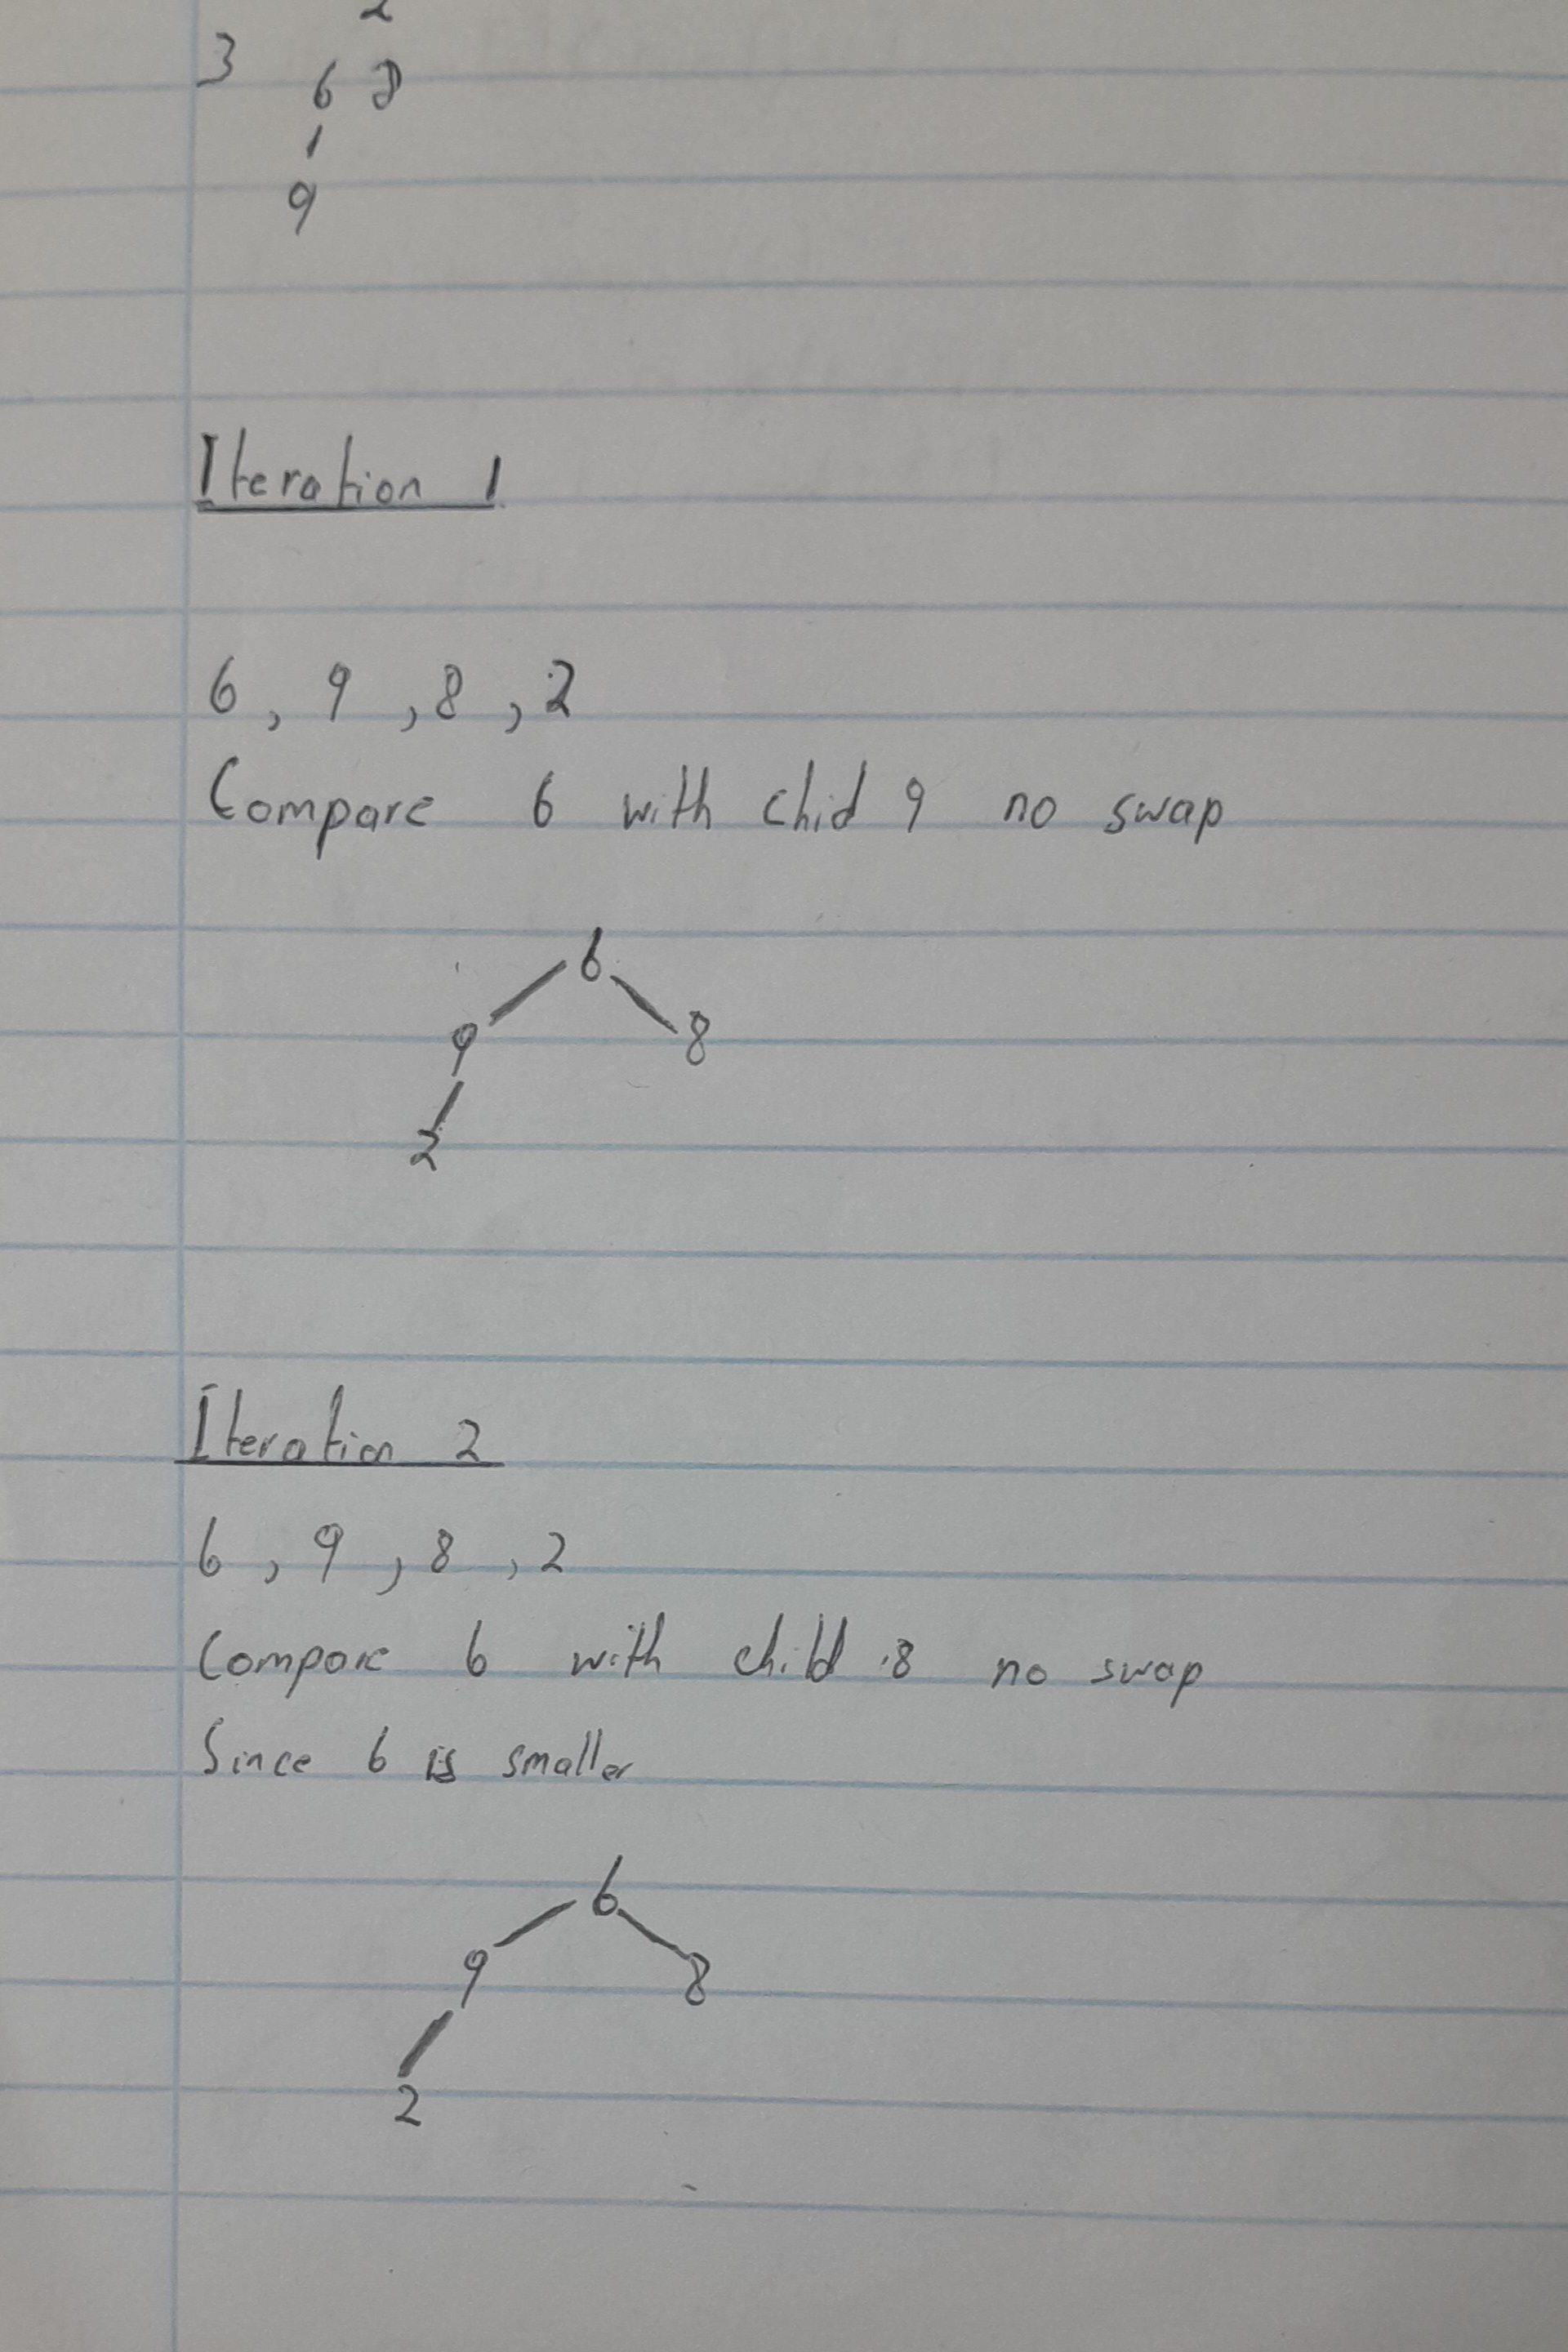 2
3 6 8
9
Iteration 1
6, 9, 8, 2
Compare 6 with chid 9 no swap
6
9 8
2
Iteration 2
6, 9, 8, 2
Compare 6 with child 8 no swap
Since 6 is smaller
6
9 8
2